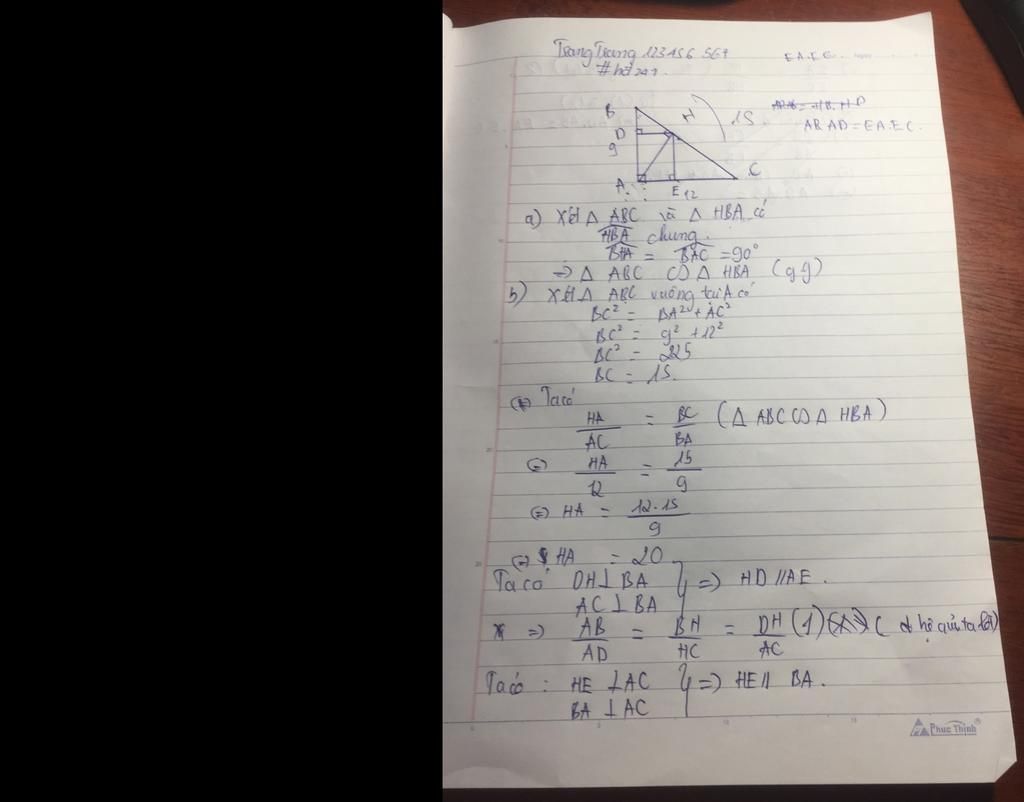 TrangTrang 123456 567
EA.EC.
AB.AD=EA.EC.
15
B
H
D
9
A
E
12
C
a) Xét Δ ABC và Δ HBA có
HBA chung.
BHA = BAC = 90°
=> Δ ABC ∽ Δ HBA (gg)
b) Xét Δ ABC vuông tại A có
BC² = BA² + AC²
BC² = 9² + 12²
BC² = 225
BC = 15.
Ta có
HA/AC = BC/BA (Δ ABC ∽ Δ HBA)
(=) HA/12 = 15/9
(=) HA = 12.15/9
(=) HA = 20
Ta có DH⊥BA } => HD//AE.
AC⊥BA
=> AB/AD = BH/HC = DH/AC (1) (hệ quả ta lét)
Ta có : HE ⊥AC } => HE// BA.
BA ⊥AC
Phuc Thinh®